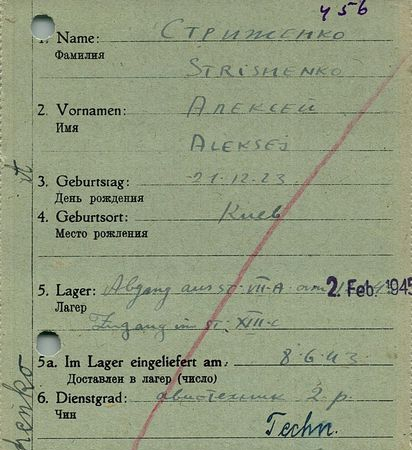 456
1. Name: Стриженко
Фамилия
Strishenko
2. Vornamen: Алексей
Имя
Aleksej
3. Geburtstag: 21.12.23
День рождения
4. Geburtsort: Киев
Место рождения
5. Lager: Abgang aus St. VII-A vom 2. Feb. 1945
Лагер
Zugang im St. XIII-C
5a. Im Lager eingeliefert am: 8.6.43
Доставлен в лагер (число)
6. Dienstgrad: авиотехник 2 р.
Чин
Techn.